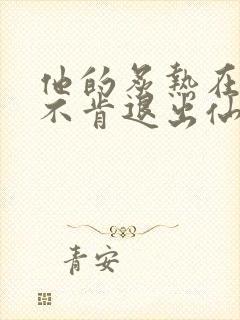 他的炙热在
不肯退出仙
青安